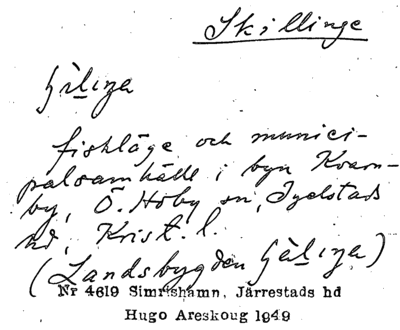 Skillinge
fiskläge och munici-
palsamhälle i byn Kvarn-
by, Ö. Hoby sn, Ingelstads
hd, Krist. l.
(Landsbygden
Nr 4619 Simrishamn, Järrestads hd
Hugo Areskoug 1949